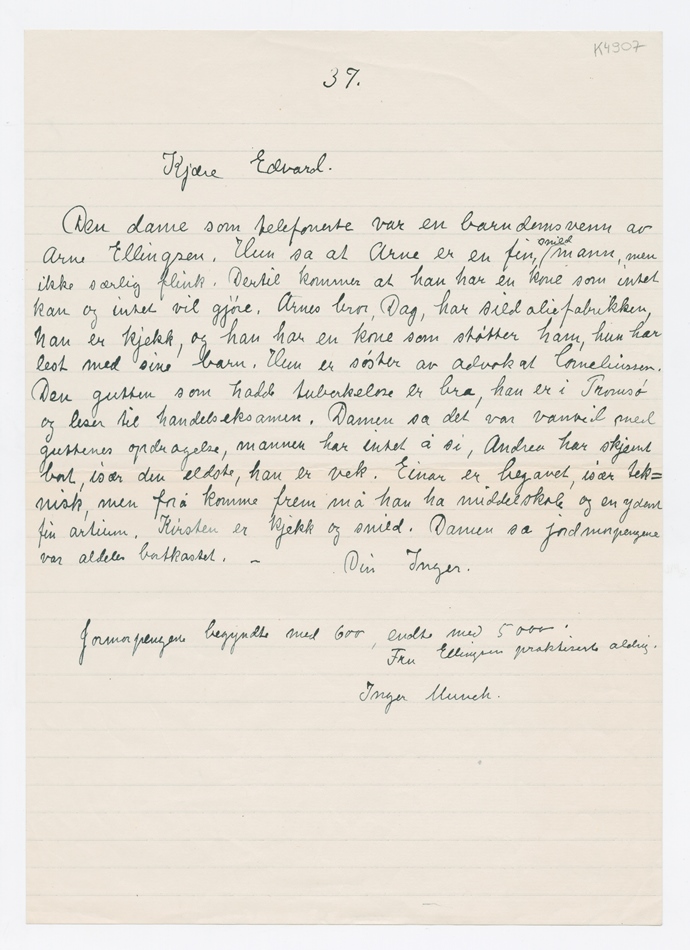 K4907
37.
Kjære Edvard.
Den dame som telefonerte var en barndomsvenn av
Arne Ellingsen. Hun sa at Arne er en fin, snild mann, men
ikke særlig flink. Dertil kommer at han har en kone som intet
kan og intet vil gjøre. Arnes bror, Dag, har sildoliefabrikken,
han er kjekk, og han har en kone som støtter ham, hun har
lest med sine barn. Hun er søster av advokat Corneliussen.
Den gutten som hadde tuberkelose er bra, han er i Tromsø
og leser til handelseksamen. Damen sa det var vanvid med
guttenes opdragelse, mannen har intet å si, Andrea har skjemt
bort, især den eldste, han er vek. Einar er begavet, især tek=
nisk, men forå komme frem må han ha middelskole og en ydent
fin artium. Kirsten er kjekk og snild. Damen sa jordmorpengene
var aldeles bortkastet. –
Din Inger.
Jormorpengene begyndte med 600, endte med 5000.
Fru Ellingsen praktiserte aldrig.
Inger Munch.